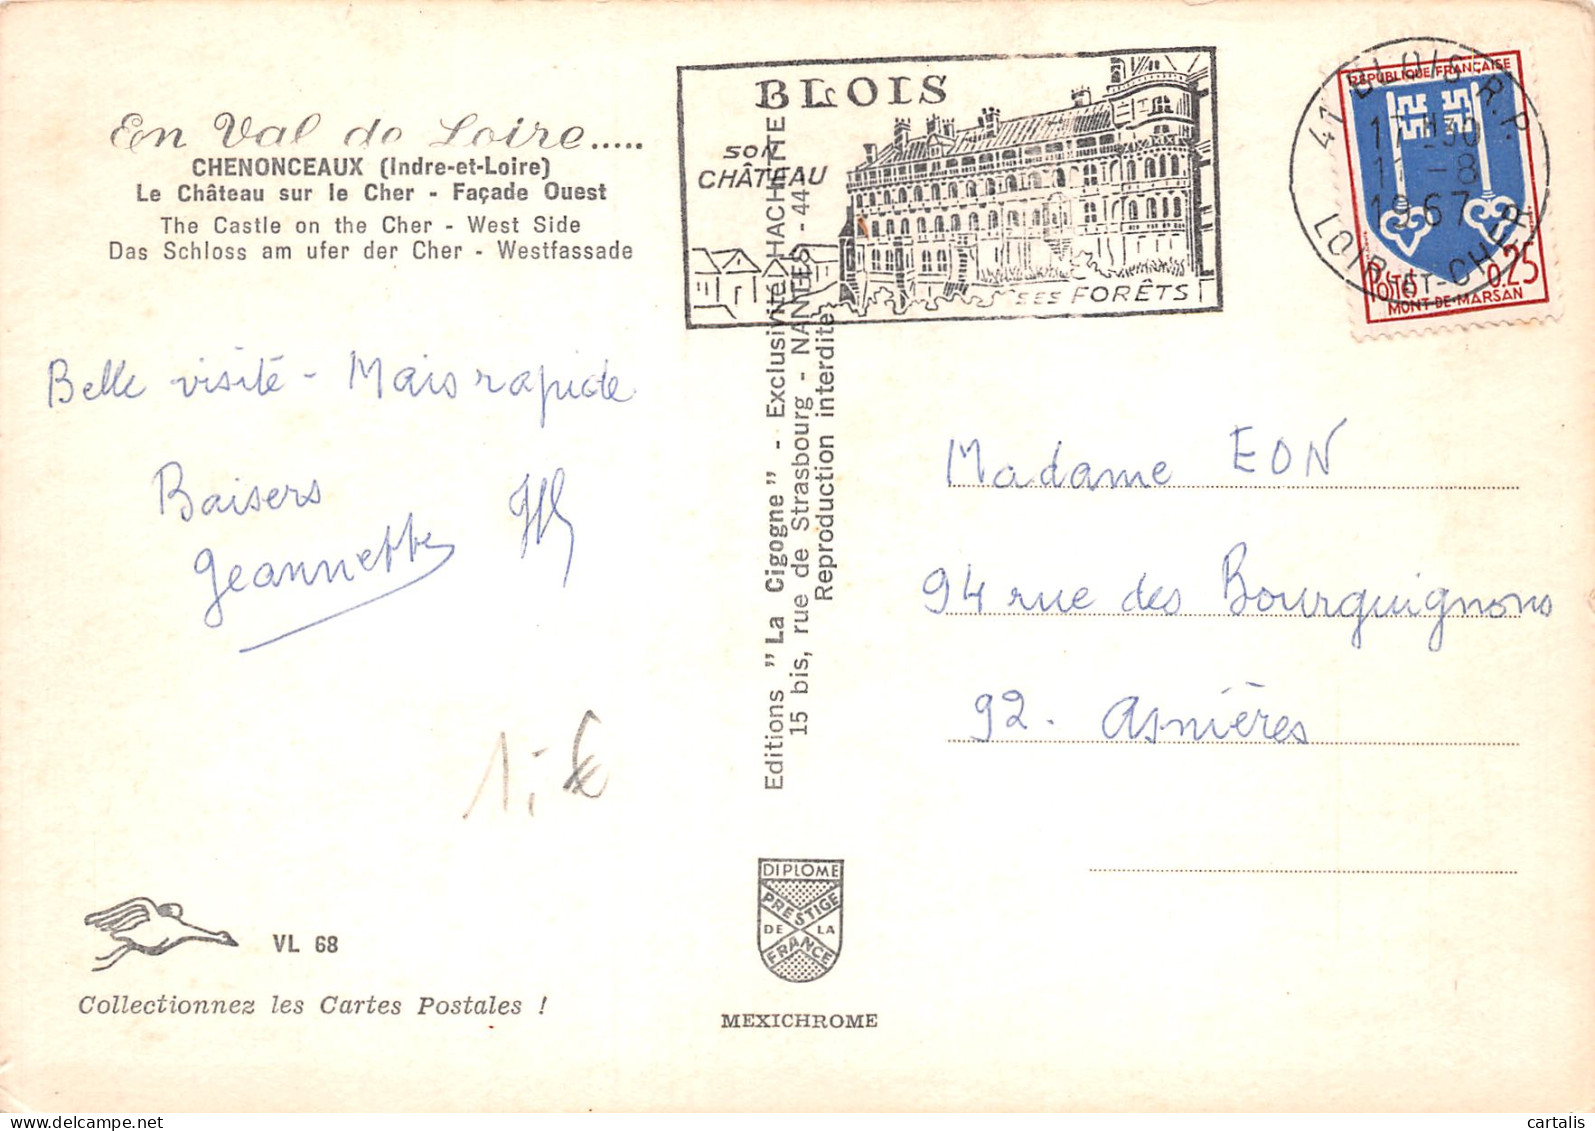 En Val de Loire.....
CHENONCEAUX (Indre-et-Loire)
Le Château sur le Cher - Façade Ouest
The Castle on the Cher - West Side
Das Schloss am ufer der Cher - Westfassade
Belle visite - Mais rapide
Baisers
Jeannette
1,- €
VL 68
Collectionnez les Cartes Postales !
Editions "La Cigogne" - Exclusivité HACHETTE
15 bis, rue de Strasbourg - NANTES - 44
Reproduction interdite
DIPLOME
PRESTIGE
DE LA
FRANCE
MEXICHROME
BLOIS
SON
CHÂTEAU
SES FORÊTS
41 BLOIS R.P.
17H30
11-8
1967
LOIR-ET-CHER
REPUBLIQUE FRANÇAISE
POSTES 0.25
MONT-DE-MARSAN
Madame EON
94 rue des Bourguignons
92. Asnières
cartalis
delcampe.net